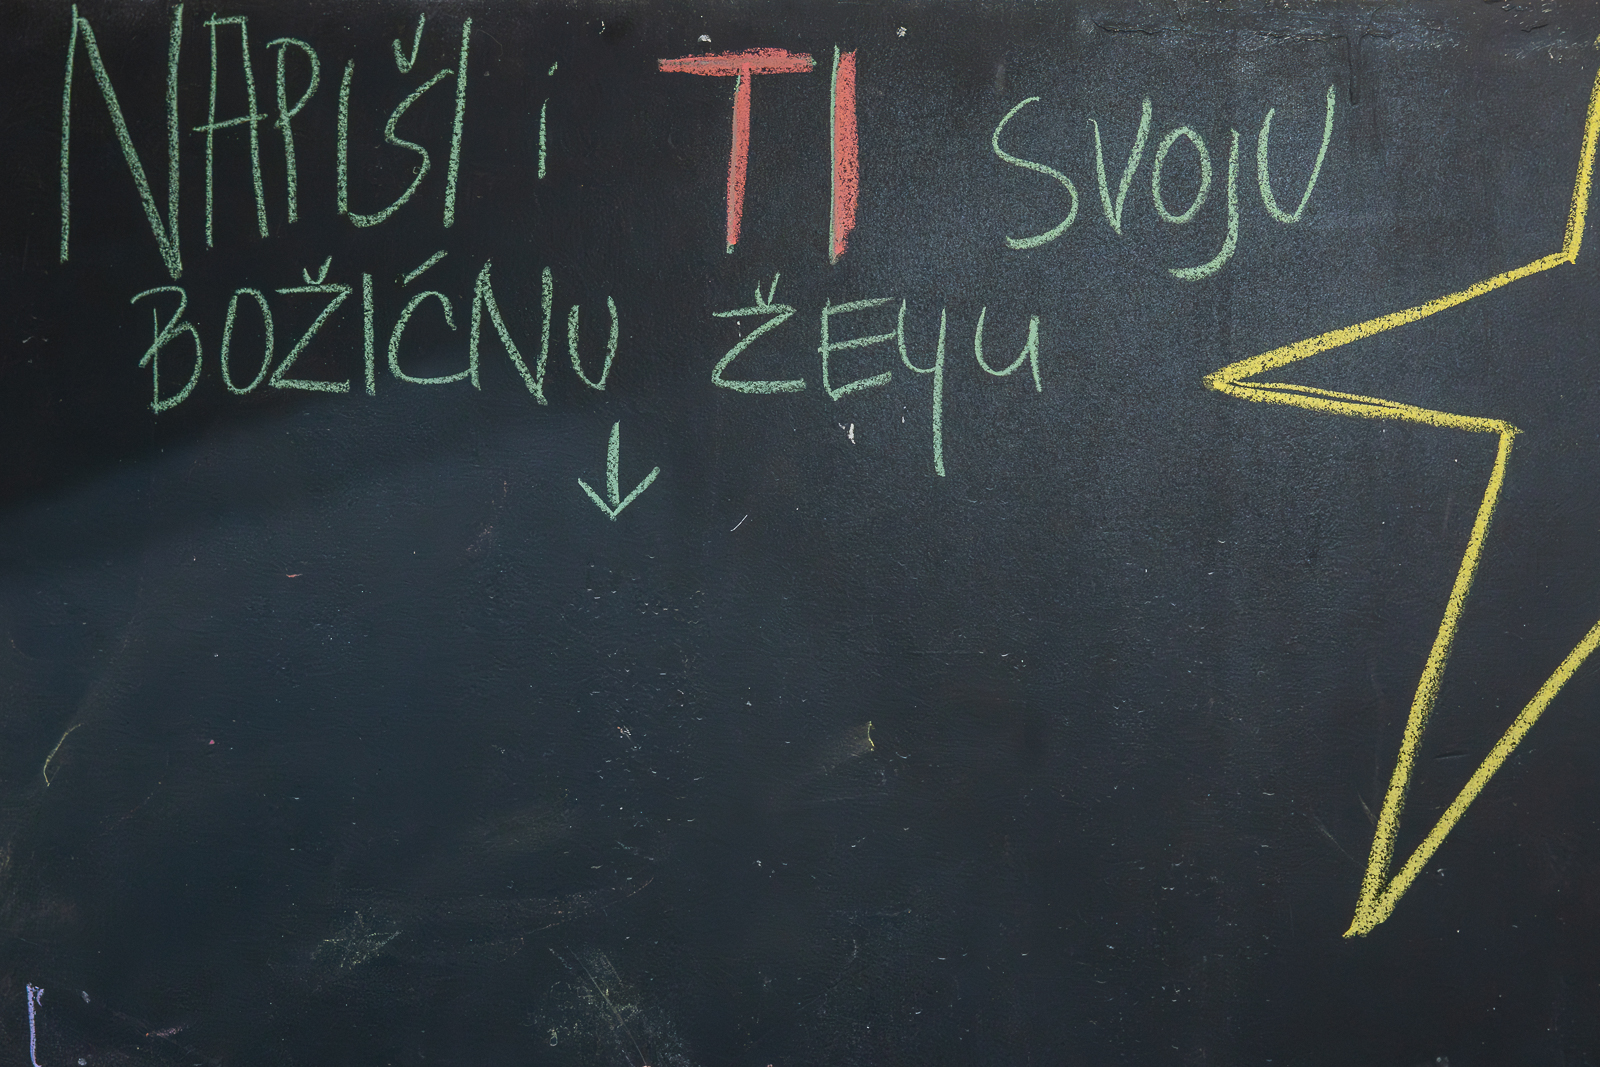 NAPIŠI i TI SVOJU
BOŽIĆNU ŽEYU